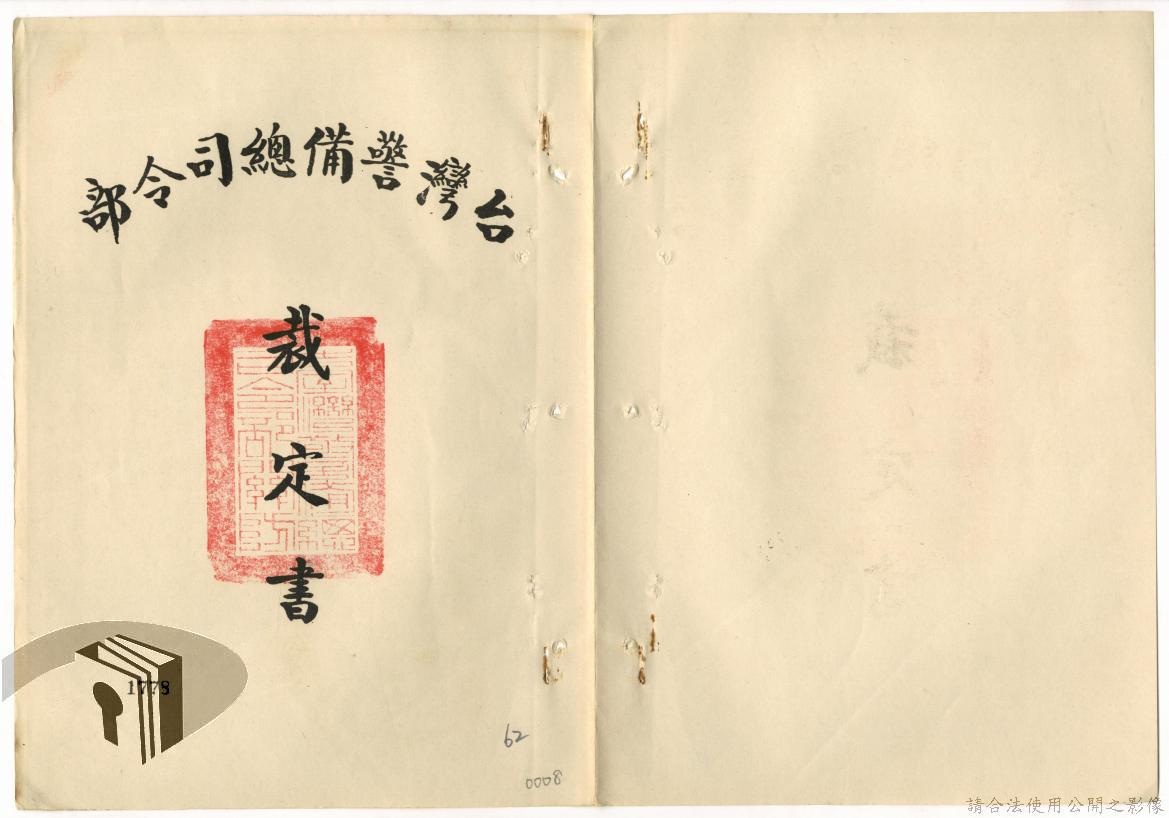 台灣警備總司令部
裁定書
1778
62
0008
請合法使用公開之影像